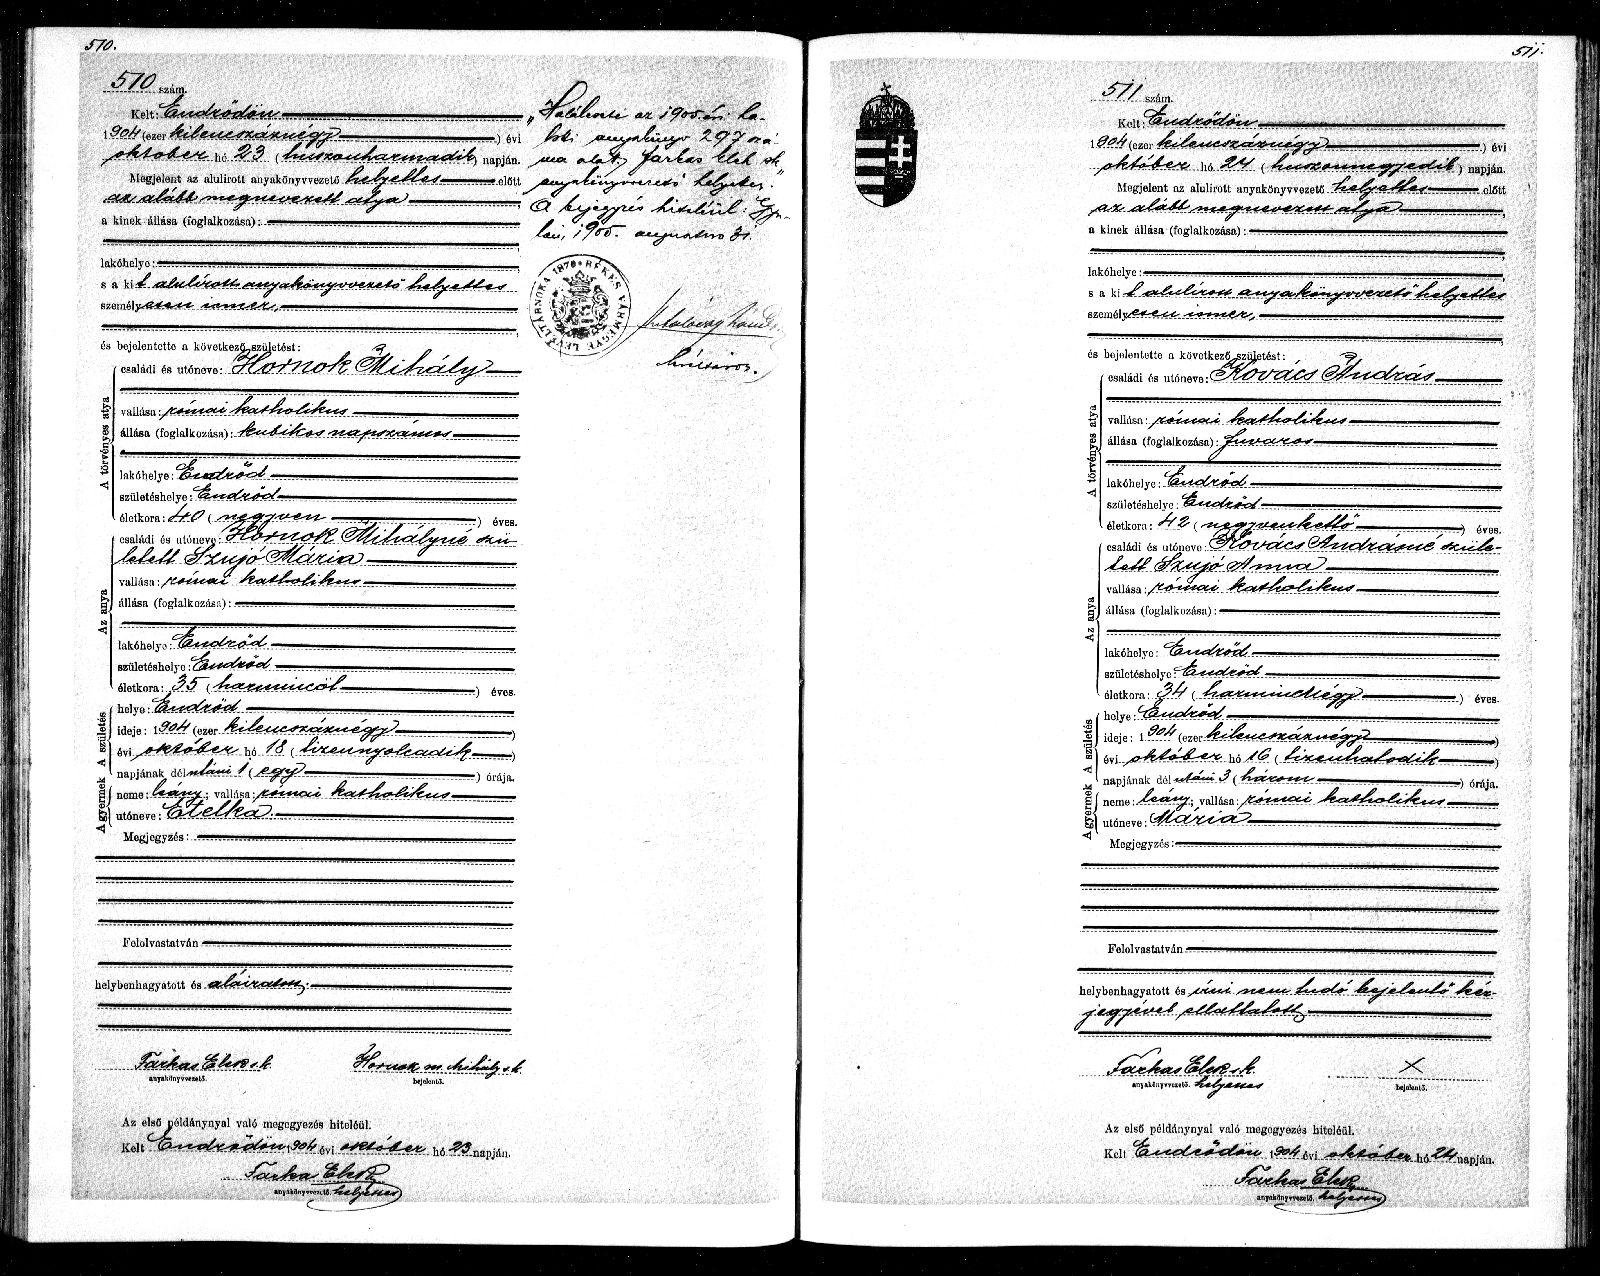 510.
510 szám.
Kelt: Endrődön
1904 (ezer kilenczszáznégy ) évi
október hó 23 (huszonharmadik) napján.
Megjelent az alulirott anyakönyvvezető helyettes előtt
az alább megnevezett atya
a kinek állása (foglalkozása):
lakóhelye:
s a kit alulírott anyakönyvvezető helyettes
személyesen ismer,
és bejelentette a következő születést:
A törvényes atya
családi és utóneve: Hornok Mihály
vallása: római katholikus
állása (foglalkozása): kubikos napszámos
lakóhelye: Endrőd
születéshelye: Endrőd
életkora: 40 (negyven ) éves.
Az anya
családi és utóneve: Hornok Mihályné szü-
letett Szujó Mária
vallása: római katholikus
állása (foglalkozása):
lakóhelye: Endrőd
születéshelye: Endrőd
életkora: 35 (harminczöt ) éves.
A gyermek A születés
helye: Endrőd
ideje: 1904 (ezer kilenczszáznégy )
évi október hó 18 (tizennyolcadik )
napjának délutáni 1 (egy ) órája.
neme: leány; vallása: római katholikus
utóneve: Etelka
Megjegyzés:
Felolvastatván
helybenhagyatott és aláiratott;
Farkas Elek s.k. Hornok m. Mihály s.k.
anyakönyvvezető. bejelentő.
Az első példánynyal való megegyezés hiteléül.
Kelt Endrődön 1904 évi október hó 23 napján.
Farkas Elek
anyakönyvvezető. helyettes
„Halálozási az 1905. évi ha-
lotti anyakönyv 297 szá-
ma alatt, Farkas Elek sk.
anyakönyvvezető helyettes."
A bejegyzés hiteléül: Gyu-
lán, 1905. augusztus 31.
BÉKÉS VÁRMEGYE LEVÉLTÁRNOKA 1876
511.
511 szám.
Kelt: Endrődön
1904 (ezer kilenczszáznégy ) évi
október hó 24 (huszonnegyedik) napján.
Megjelent az alulirott anyakönyvvezető helyettes előtt
az alább megnevezett atya
a kinek állása (foglalkozása):
lakóhelye:
s a kit alulírott anyakönyvvezető helyettes
személyesen ismer,
és bejelentette a következő születést:
A törvényes atya
családi és utóneve: Kovács András
vallása: római katholikus
állása (foglalkozása): fuvaros
lakóhelye: Endrőd
születéshelye: Endrőd
életkora: 42 (negyvenkettő ) éves.
Az anya
családi és utóneve: Kovács Andrásné szüle-
tett Szujó Anna
vallása: római katholikus
állása (foglalkozása):
lakóhelye: Endrőd
születéshelye: Endrőd
életkora: 34 (harmincznégy ) éves.
A gyermek A születés
helye: Endrőd
ideje: 1904 (ezer kilenczszáznégy )
évi október hó 16 (tizenhatodik )
napjának délutáni 3 (három ) órája.
neme: leány; vallása: római katholikus
utóneve: Mária
Megjegyzés:
Felolvastatván
helybenhagyatott és írni nem tudó bejelentő kéz-
jegyével elláttatott;
Farkas Elek s.k. X
anyakönyvvezető. helyettes bejelentő.
Az első példánynyal való megegyezés hiteléül.
Kelt Endrődön 1904 évi október hó 24 napján.
Farkas Elek
anyakönyvvezető. helyettes